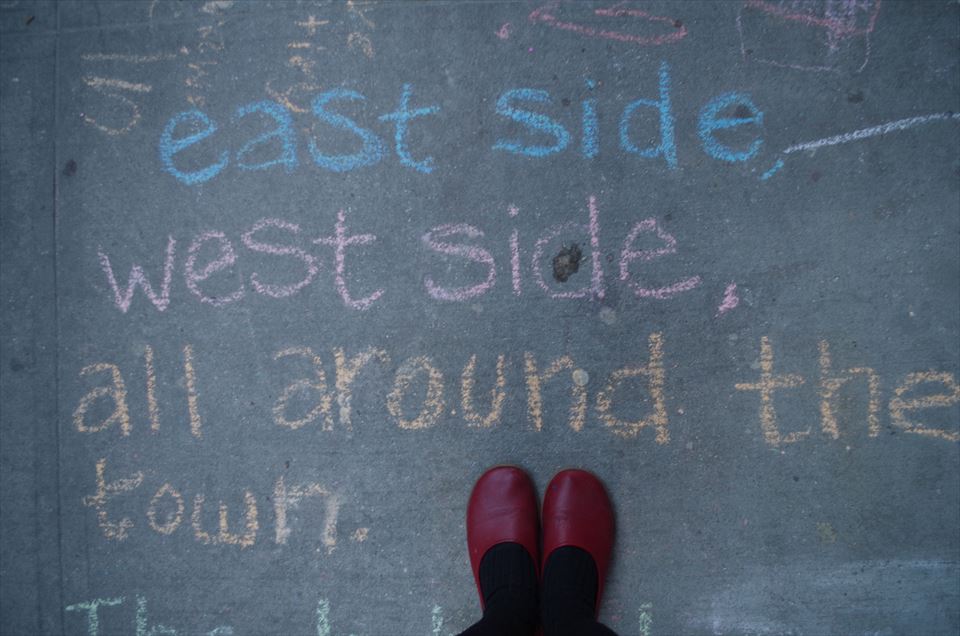 east side,
west side,
all around the
town.
The